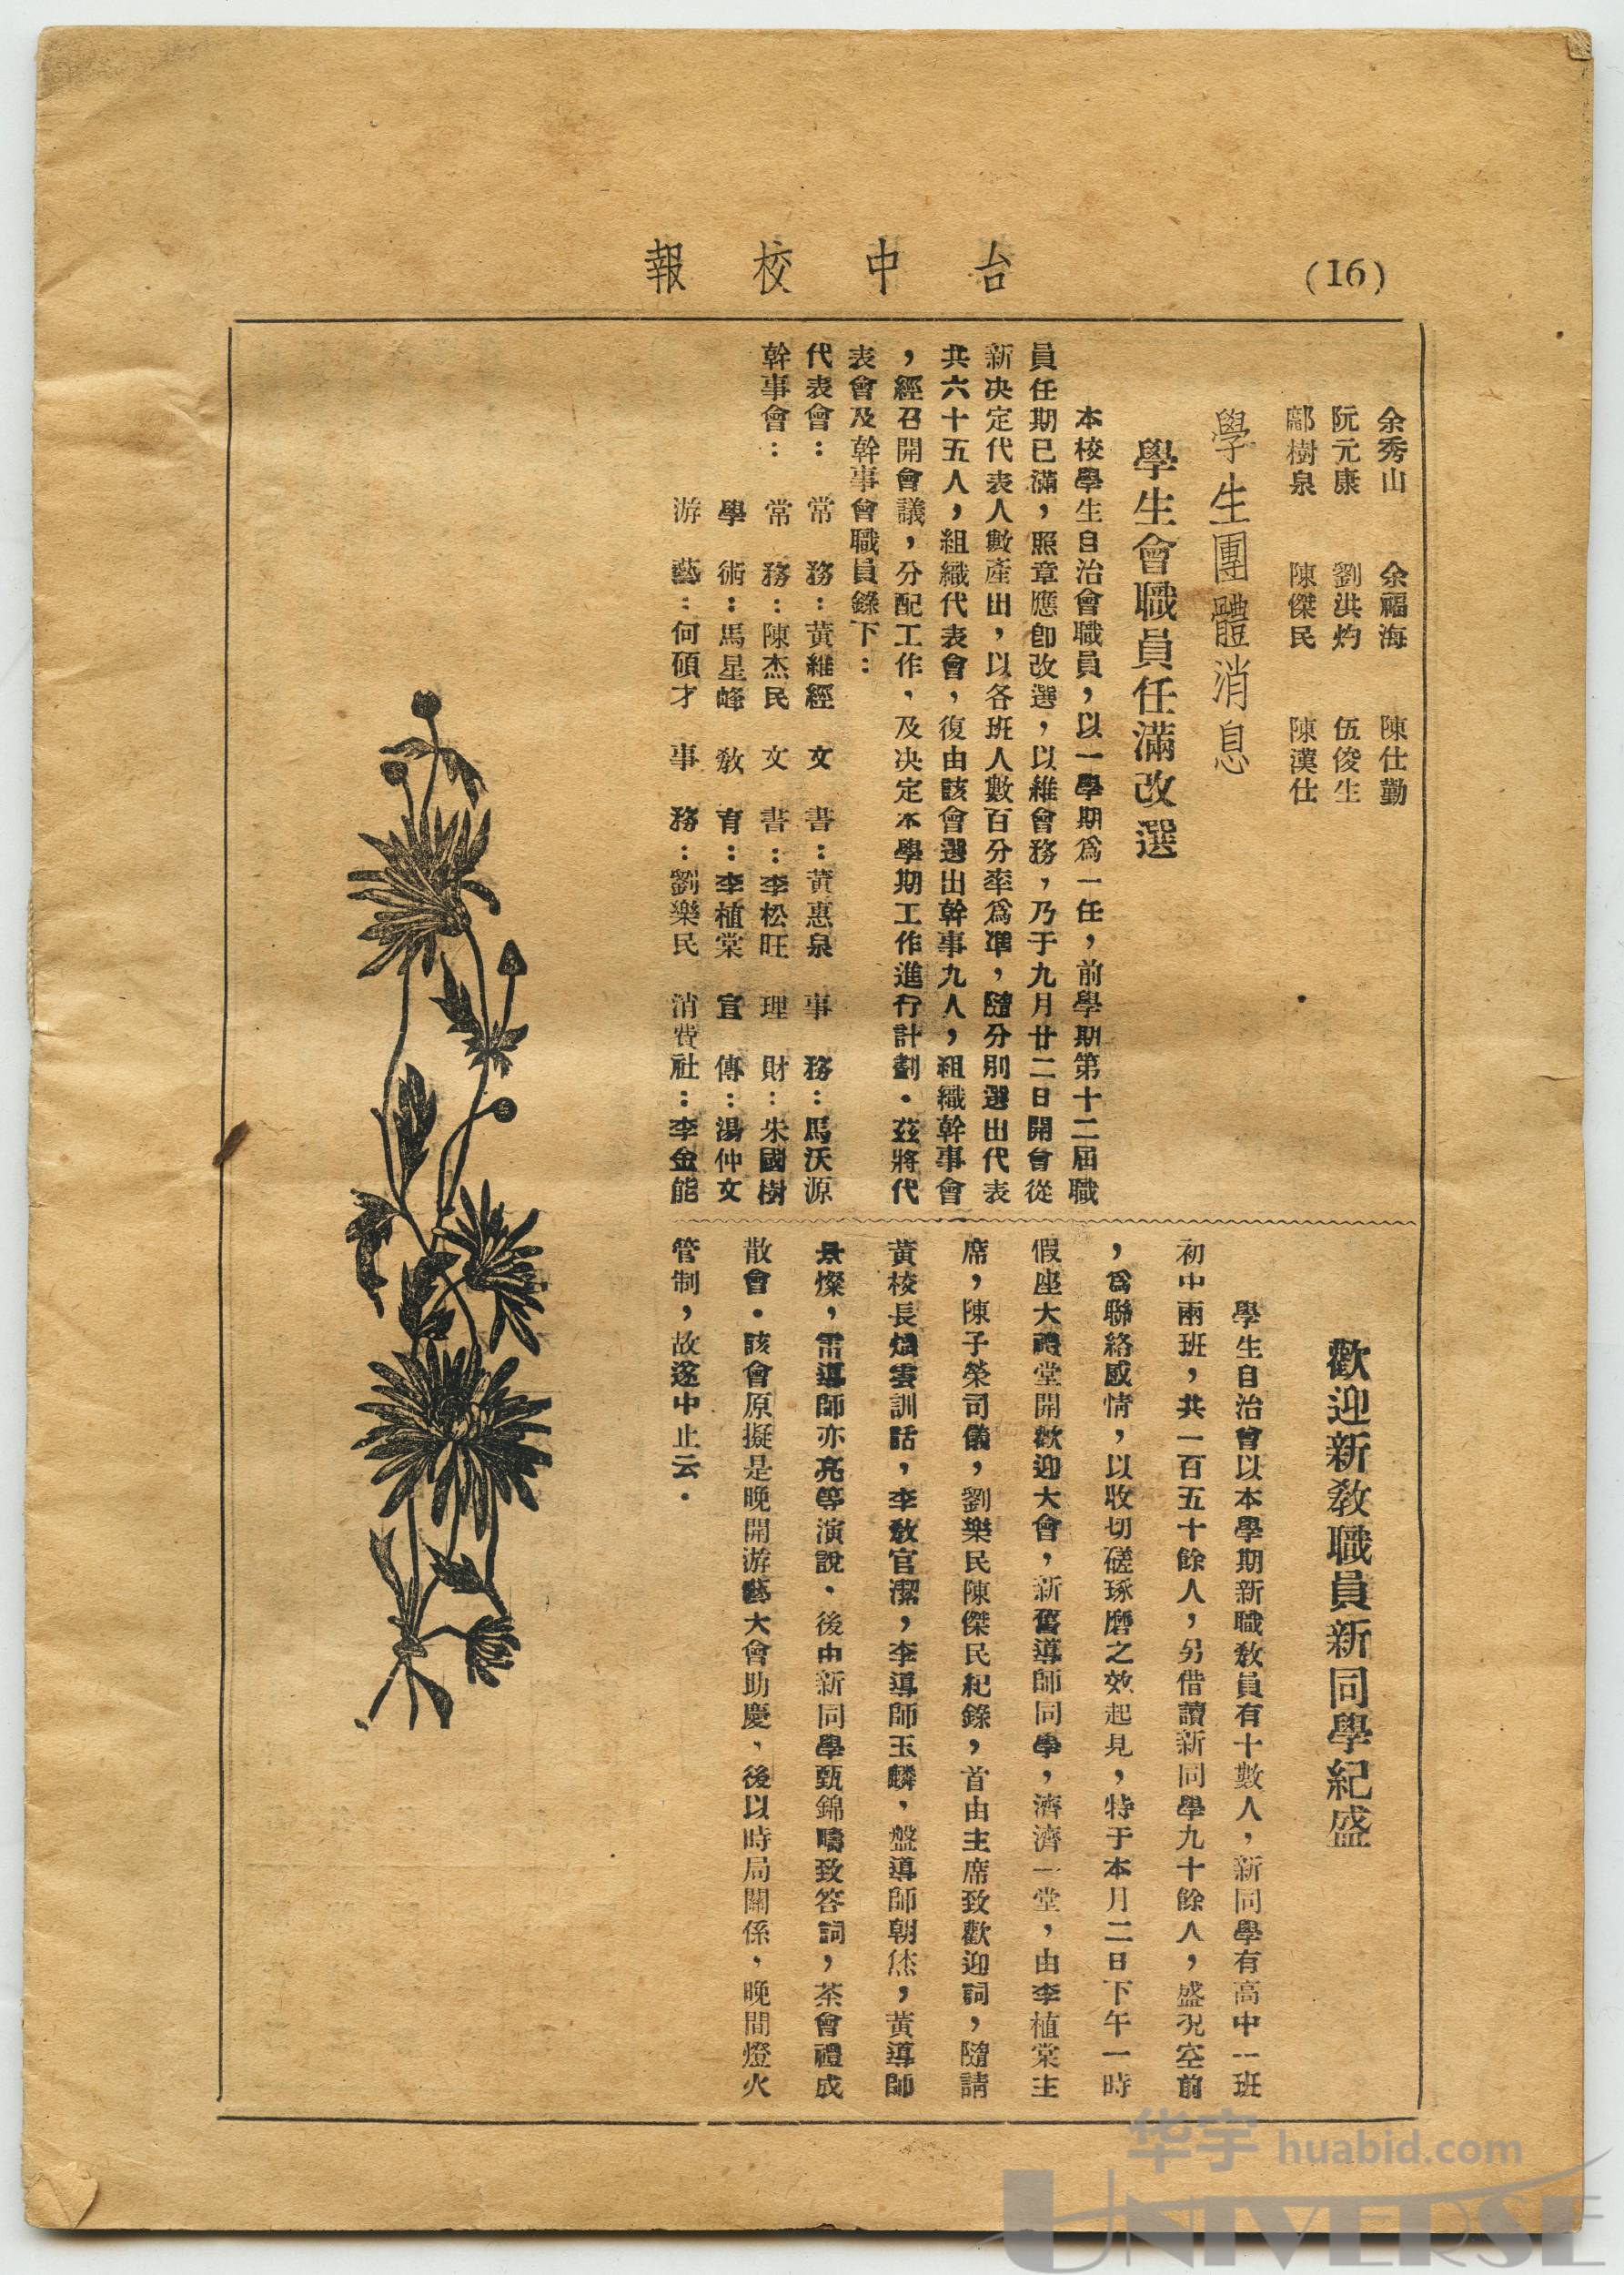 (16)
台中校報
余秀山　余福海　陳仕勤
阮元康　劉洪灼　伍俊生
鄺樹泉　陳傑民　陳漢仕
學生團體消息
學生會職員任滿改選
本校學生自治會職員，以一學期爲一任，前學期第十二屆職
員任期已滿，照章應卽改選，以維會務，乃于九月廿二日開會從
新决定代表人數產出，以各班人數百分率爲準，隨分別選出代表
共六十五人，組織代表會，復由該會選出幹事九人，組織幹事會
，經召開會議，分配工作，及决定本學期工作進行計劃．茲將代
表會及幹事會職員錄下：
代表會：　常　務：黃維經　文　書：黃惠泉　事　務：馬沃源
幹事會：　常　務：陳杰民　文　書：李松旺　理　財：朱國樹
學　術：馬星峰　敎　育：李植棠　宣　傳：湯仲文
游　藝：何碩才　事　務：劉樂民　消費社：李金能
歡迎新敎職員新同學紀盛
學生自治會以本學期新職敎員有十數人，新同學有高中一班
初中兩班，共一百五十餘人，另借讀新同學九十餘人，盛况空前
，爲聯絡感情，以收切磋琢磨之效起見，特于本月二日下午一時
假座大禮堂開歡迎大會，新舊導師同學，濟濟一堂，由李植棠主
席，陳子榮司儀，劉樂民陳傑民紀錄，首由主席致歡迎詞，隨請
黃校長 雲訓話，李敎官潔，李導師玉麟，盤導師朝杰，黃導師
景燦，雷導師亦亮等演說．後由新同學甄錦疇致答詞，茶會禮成
散會．該會原擬是晚開游藝大會助慶，後以時局關係，晚間燈火
管制，故遂中止云．
华宇 huabid.com
UNIVERSE